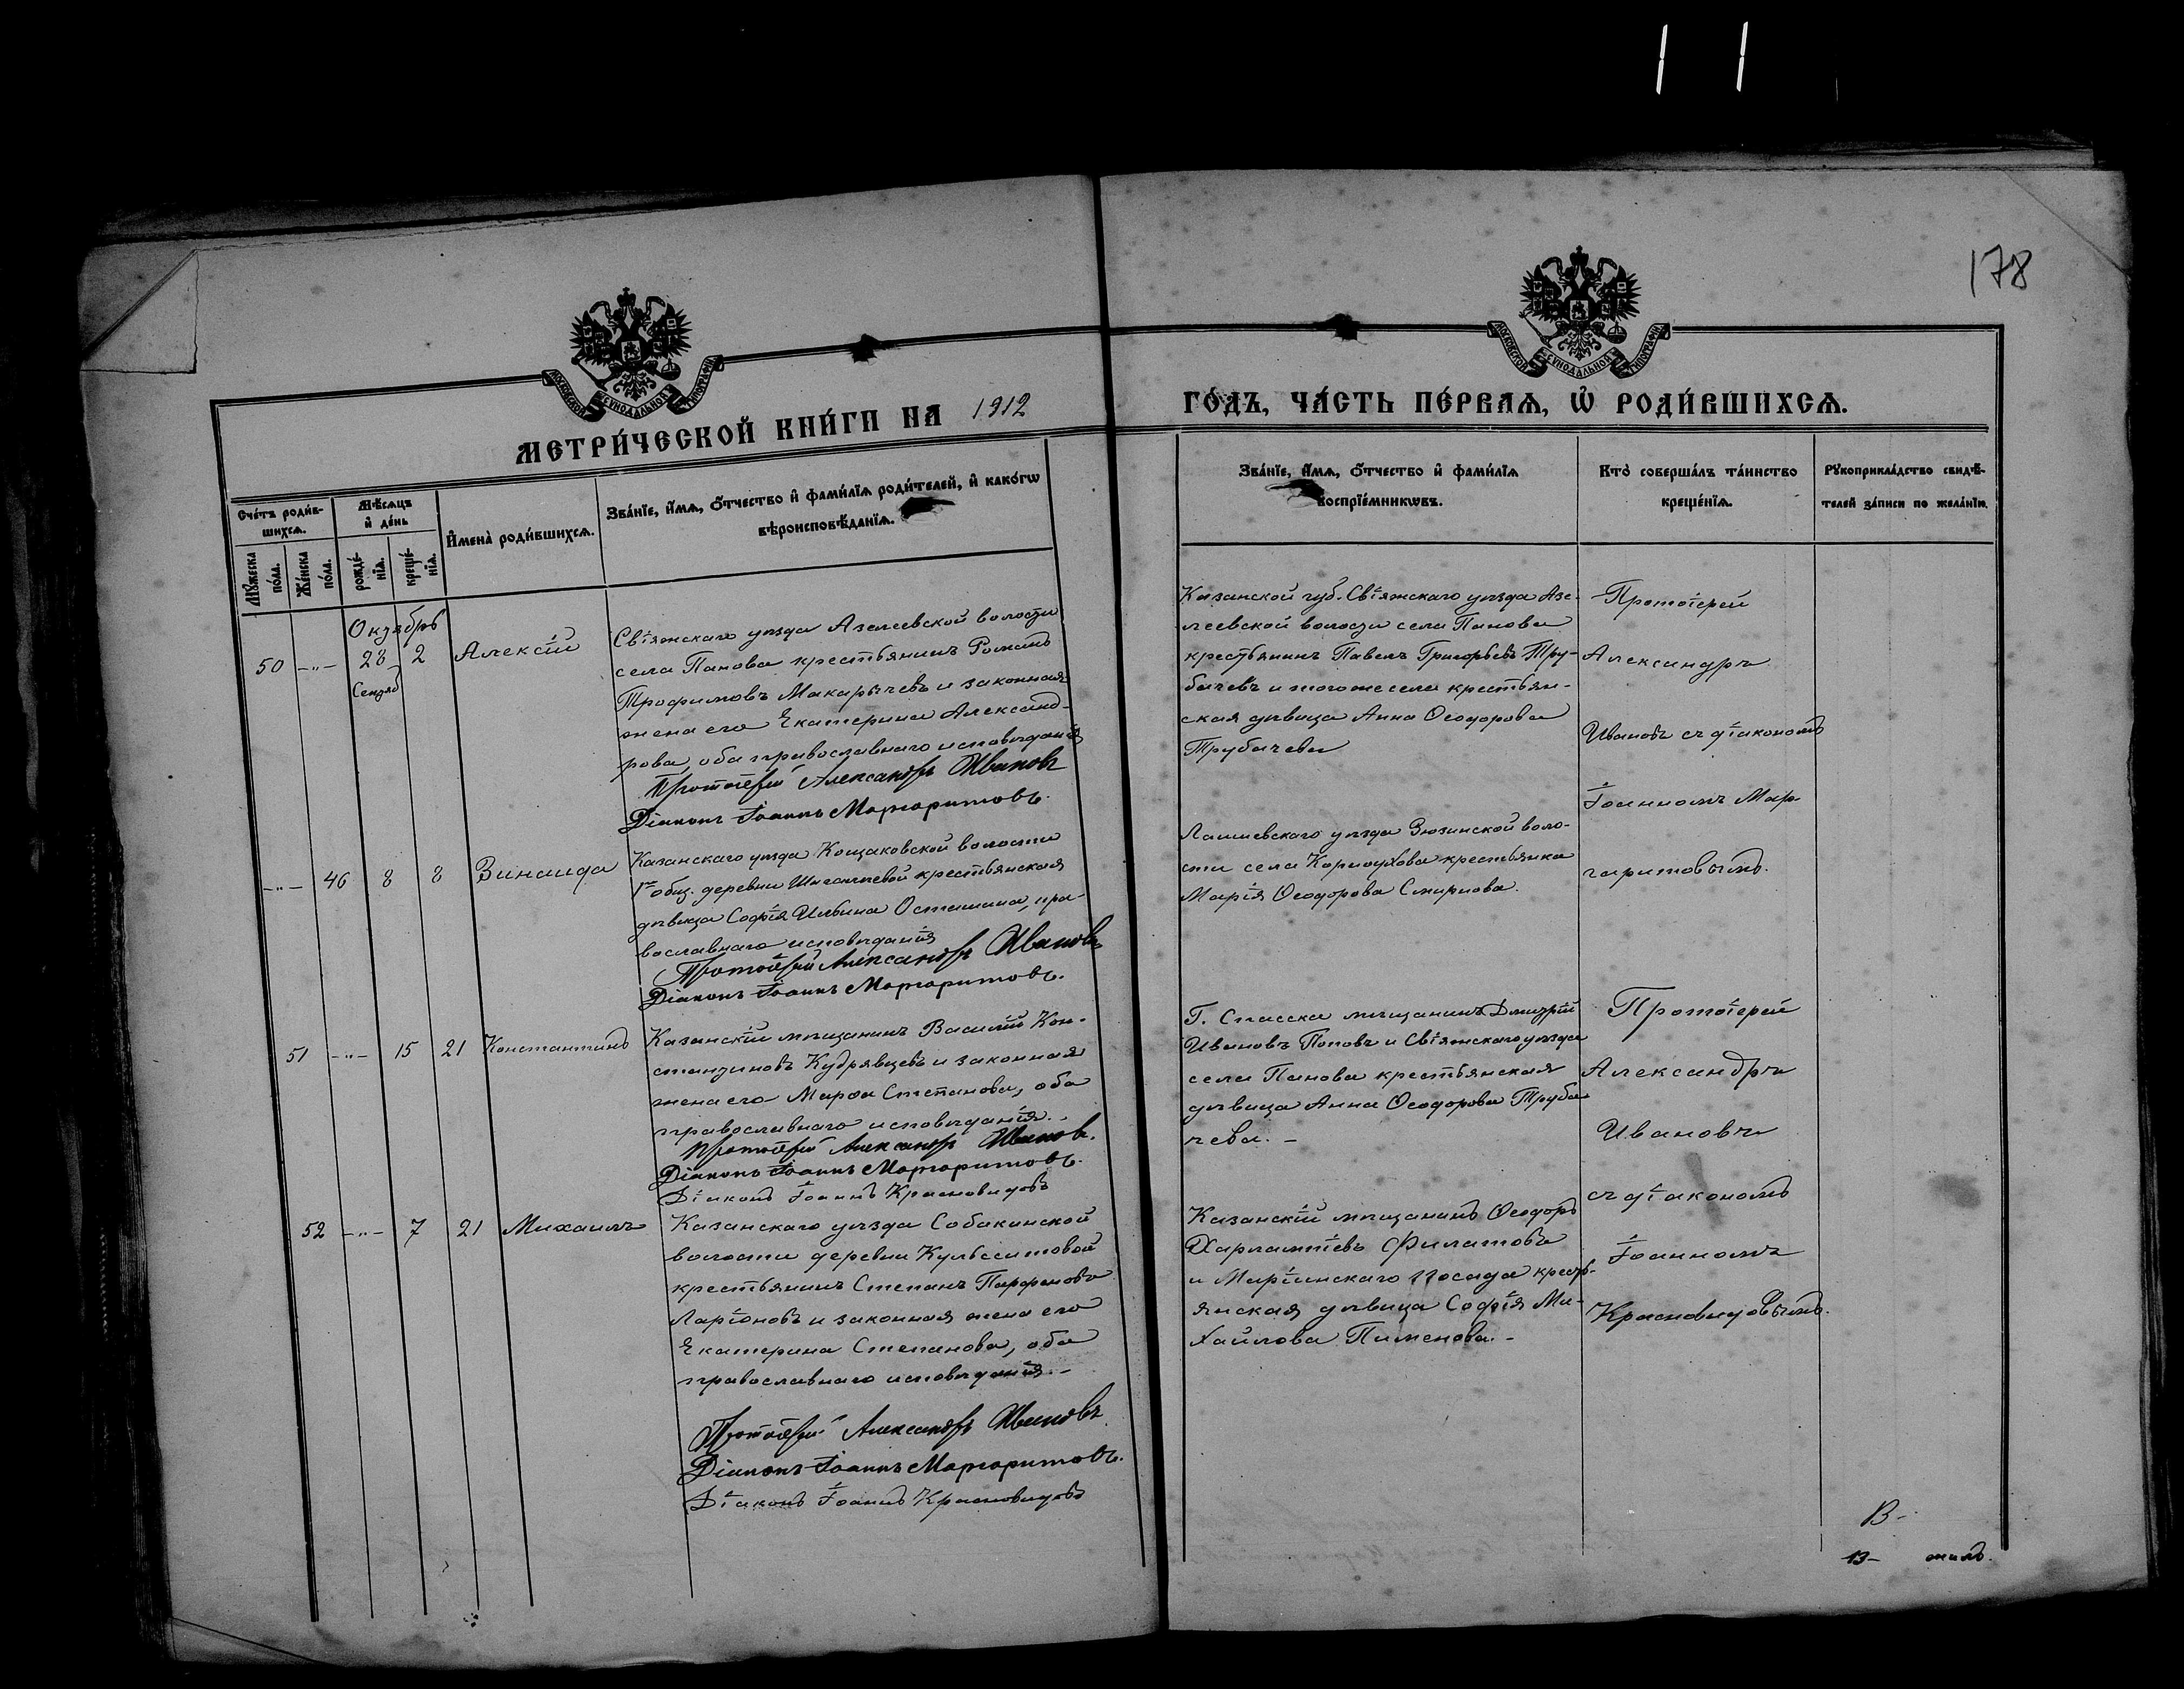 178
МОСКОВСКОЙ СѴНОДАЛЬНОЙ ТИПОГРАФІИ
МОСКОВСКОЙ СѴНОДАЛЬНОЙ ТИПОГРАФІИ
МЕТРИ́ЧЕСКОЙ КНИ́ГИ НА 1912
ГО́ДЪ, ЧА́СТЬ ПЕ́РВАѦ, Ѡ҆ РОДИ́ВШИХСѦ.
Сче́тъ роди́в-
шихсѧ.
Мꙋ́жеска
по́ла.
Же́нска
по́ла.
Мѣ́сѧцъ
и҆ де́нь
рожде́-
нїѧ.
креще́-
нїѧ.
И҆мена̀ роди́вшихсѧ.
Зва́нїе, и҆́мѧ, ѻ҆́тчество и҆ фами́лїѧ роди́телей, и҆ како́гѡ
вѣроисповѣ́данїѧ.
Зва́нїе, и҆́мѧ, ѻ҆́тчество и҆ фами́лїѧ
воспрїе́мникѡвъ.
Кто̀ соверша́лъ та́инство
креще́нїѧ.
Рꙋкоприкла́дство свидѣ́-
телей за́писи по жела́нїю.
Октябрь
50 -„- 28 2 Алексій
Сентяб
Свіяжскаго уѣзда Азелеевской волости
села Панова крестьянинъ Романъ
Трофимовъ Макарычевъ и законная
жена его Екатерина Александ-
рова, оба православнаго исповѣданія
Протоіерей Александръ Ивановъ
Діаконъ Іоаннъ Маргаритовъ.
Казанской губ. Свіяжскаго уѣзда Азе-
леевской волости села Панова
крестьянинъ Павелъ Григорьевъ Тру-
бачевъ и того же села крестьян-
ская дѣвица Анна Ѳеодорова
Трубачева
Протоіерей
Александръ
Ивановъ съ діакономъ
Іоанномъ Мар-
гаритовымъ.
-„- 46 8 8 Зинаида
Казанскаго уѣзда Кощаковской волости
1го общ. деревни крестьянская
дѣвица Софія Ильина Осташина, пра-
вославнаго исповѣданія
Протоіерей Александръ Ивановъ
Діаконъ Іоаннъ Маргаритовъ.
Лаишевскаго уѣзда Зюзинской воло-
сти села Кормоухова крестьянка
Марія Ѳеодорова Смирнова.
51 -„- 15 21 Константинъ
Казанскій мѣщанинъ Василій Кон-
стантиновъ Кудрявцевъ и законная
жена его Марѳа Степанова, оба
православнаго исповѣданія.
Протоіерей Александръ Ивановъ.
Діаконъ Іоаннъ Маргаритовъ.
Діаконъ Іоаннъ Красновидовъ
Г. Спасска мѣщанинъ Дмитрій
Ивановъ Поповъ и Свіяжскаго уѣзда
села Панова крестьянская
дѣвица Анна Ѳеодорова Труба-
чева. -
Протоіерей
Александръ
Ивановъ
съ діакономъ
Іоанномъ
Красновидовымъ.
52 -„- 7 21 Михаилъ
Казанскаго уѣзда Собакинской
волости деревни Кульсеитовой
крестьянинъ Степанъ Парфеновъ
Ларіоновъ и законная жена его
Екатерина Степанова, оба
православнаго исповѣданія. -
Протоіерей Александръ Ивановъ
Діаконъ Іоаннъ Маргаритовъ.
Діаконъ Іоаннъ Красновидовъ
Казанскій мѣщанинъ Ѳеодоръ
Харлампіевъ Филатовъ
и Маріинскаго Посада кресть-
янская дѣвица Софія Ми-
хайлова Пименова. -